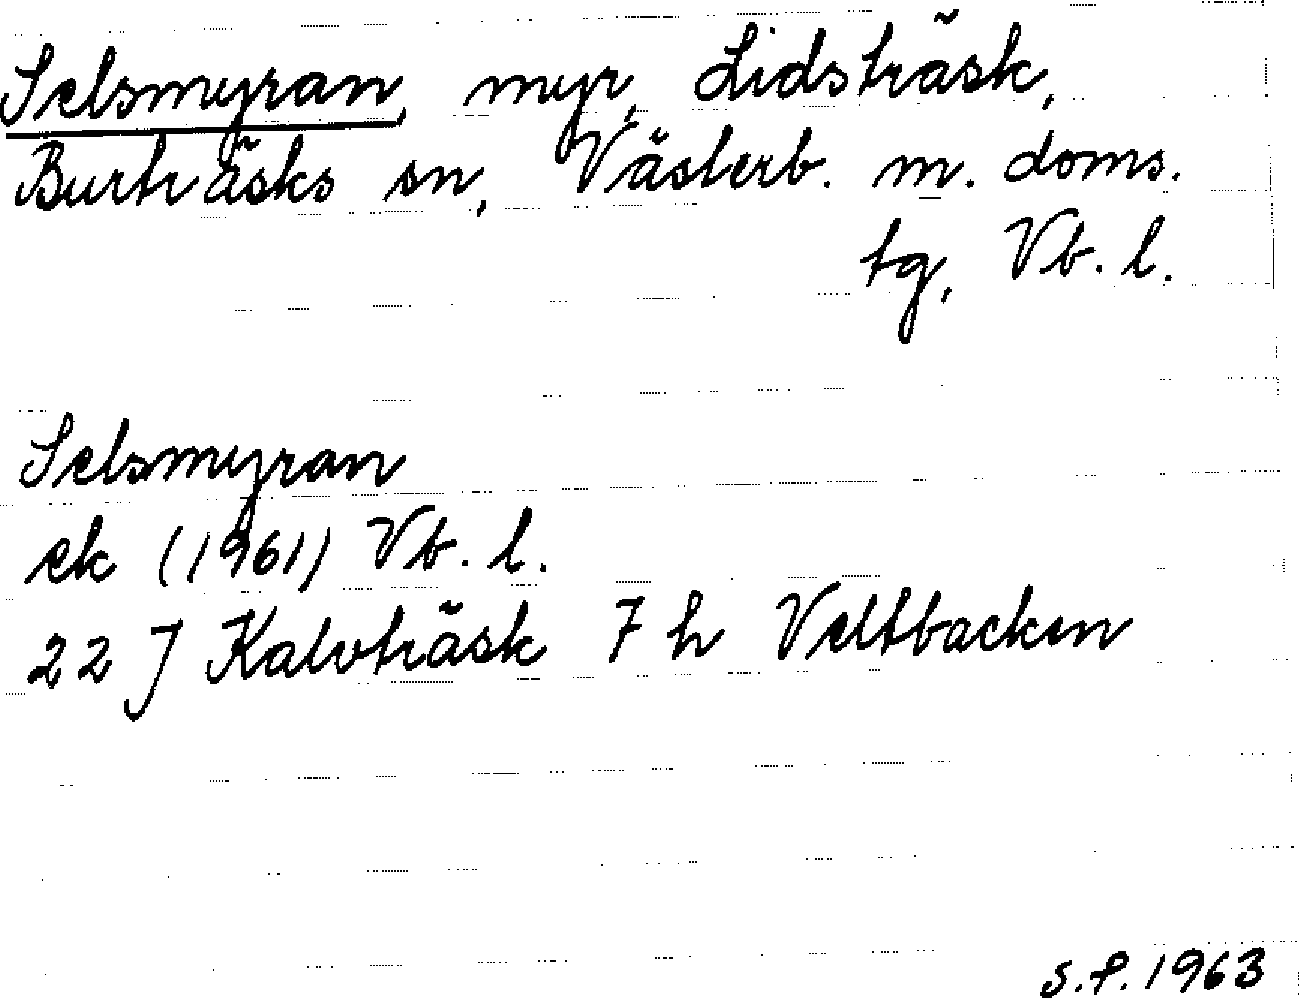 Selsmyran, myr, Lidsträsk,
Burträsks sn, Västerb. m. doms.
tg, Vb. l.
Selsmyran
ek (1961) Vb. l.
22 J Kalvträsk 7 h Veltbacken
S.F. 1963